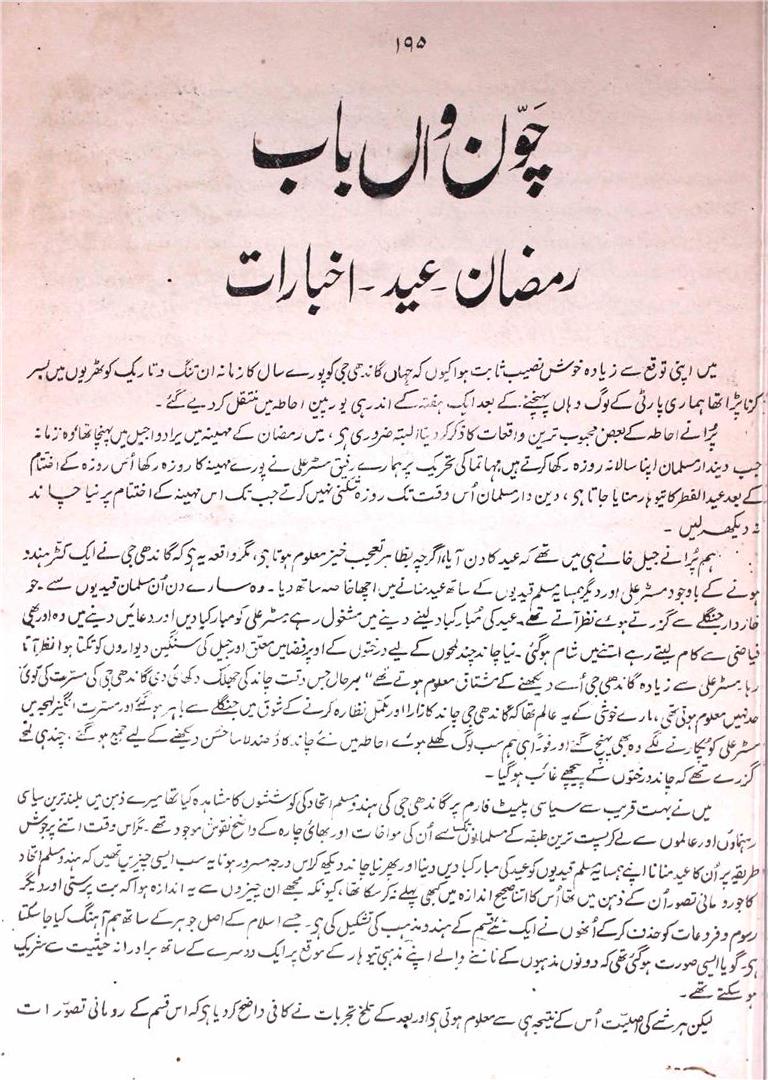 ۱۹۵
چَوّن واں باب
رمضان - عید - اخبارات
میں اپنی توقع سے زیادہ خوش نصیب ثابت ہوا کیوں کہ جہاں گاندھی جی کو پورے سال کا زمانہ ان تنگ و تاریک کوٹھریوں میں بسر
کرنا پڑا تھا ہماری پارٹی کے لوگ وہاں پہنچنے کے بعد ایک ہفتہ کے اندر ہی یورپین احاطہ میں منتقل کر دیے گئے ۔
پُرانے احاطہ کے بعض محبوب ترین واقعات کا ذکر کر دینا البتہ ضروری ہی ، میں رمضان کے مہینہ میں یرادوا جیل میں پہنچا تھا وہ زمانہ
جب دیندار مسلمان اپنا سالانہ روزہ رکھا کرتے ہیں مہاتما کی تحریک پر ہمارے رفیق مسٹر علی نے پورے مہینہ کا روزہ رکھا اُس روزہ کے اختتام
کے بعد عید الفطر کا تیوہار منایا جاتا ہی ، دین دار مسلمان اُس وقت تک روزہ شکنی نہیں کرتے جب تک اس مہینہ کے اختتام پر نیا چاند
نہ دیکھ لیں ۔
ہم پُرانے جیل خانے ہی میں تھے کہ عید کا دن آیا ، اگرچہ بظاہر تعجب خیز معلوم ہوتا ہی ، مگر واقعہ یہ ہی کہ گاندھی جی نے ایک کٹر ہندو
ہونے کے باوجود مسٹر علی اور دیگر ہمسایہ مسلم قیدیوں کے ساتھ عید منانے میں اچھا خاصہ ساتھ دیا ۔ وہ سارے دن اُن مسلمان قیدیوں سے ۔ جو
خاردار جنگلے سے گزرتے ہوئے نظر آتے تھے ۔ عید کی مُبارکباد لینے دینے میں مشغول رہے مسٹر علی کو مبارکباد دیں اور دعائیں دینے میں وہ اور بھی
فیاضی سے کام لیتے رہے اتنے میں شام ہو گئی ۔ نیا چاند چند لمحوں کے لیے درختوں کے اوپر فضا میں معلق اور جیل کی سنگین دیواروں کو تکتا ہوا نظر آتا
رہا ۔ مسٹر علی سے زیادہ گاندھی جی اُسے دیکھنے کے مشتاق معلوم ہوتے تھے " بہر حال جس وقت چاند کی جھلک دکھائی دی گاندھی جی کی مسرت کی کوئی
حد نہیں معلوم ہوتی تھی ، مارے خوشی کے یہ عالم تھا کہ گاندھی جی چاند کا زارا اور مکمل نظارہ کرنے کے شوق میں جنگلے سے باہر ہو گئے اور مسرت انگیز لہجہ میں
مسٹر علی کو پکارنے لگے وہ بھی پہنچ گئے اور فوراً ہی ہم سب لوگ کھلے ہوئے احاطہ میں نئے چاند کا دُھندلا سا حُسن دیکھنے کے لیے جمع ہو گئے ، چند ہی لمحے
گزرے تھے کہ چاند درختوں کے پیچھے غائب ہو گیا ۔
میں نے بہت قریب سے سیاسی پلیٹ فارم پر گاندھی جی کی ہندو مسلم اتحاد کی کوششوں کا مشاہدہ کیا تھا میرے ذہن میں بلند ترین سیاسی
رہنماؤں اور عالموں سے لے کر پست ترین طبقہ کے مسلمانوں تک سے اُن کی مواخات اور بھائی چارہ کے واضح نقوش موجود تھے ۔ مگر اس وقت اتنے پُر جوش
طریقہ پر اُن کا عید منانا اپنے ہمسایہ مسلم قیدیوں کو عید کی مبارکباد یں دینا اور پھر نیا چاند دیکھ کر اس درجہ مسرور ہونا یہ سب ایسی چیزیں تھیں کہ ہندو مسلم اتحاد
کا جو رومانی تصور اُن کے ذہن میں تھا اُس کا اتنا صحیح اندازہ میں کبھی پہلے نہ کر سکا تھا ، کیونکہ مجھے ان چیزوں سے یہ اندازہ ہوا کہ بت پرستی اور دیگر
رسوم و فروعات کو حذف کر کے اُنھوں نے ایک نئے قسم کے ہندو مذہب کی تشکیل کی ہی ۔ جسے اسلام کے اصل جوہر کے ساتھ ہم آہنگ کیا جا سکتا
ہی ۔ گویا ایسی صورت ہو گئی تھی کہ دونوں مذہبوں کے ماننے والے اپنے مذہبی تیوہار کے موقع پر ایک دوسرے کے ساتھ برادرانہ حیثیت سے شریک
ہو سکتے تھے ۔
لیکن ہر شے کی اصلیت اُس کے نتیجہ ہی سے معلوم ہوتی ہی اور بعد کے تلخ تجربات نے کافی واضح کر دیا ہی کہ اس قسم کے رومانی تصوّرات